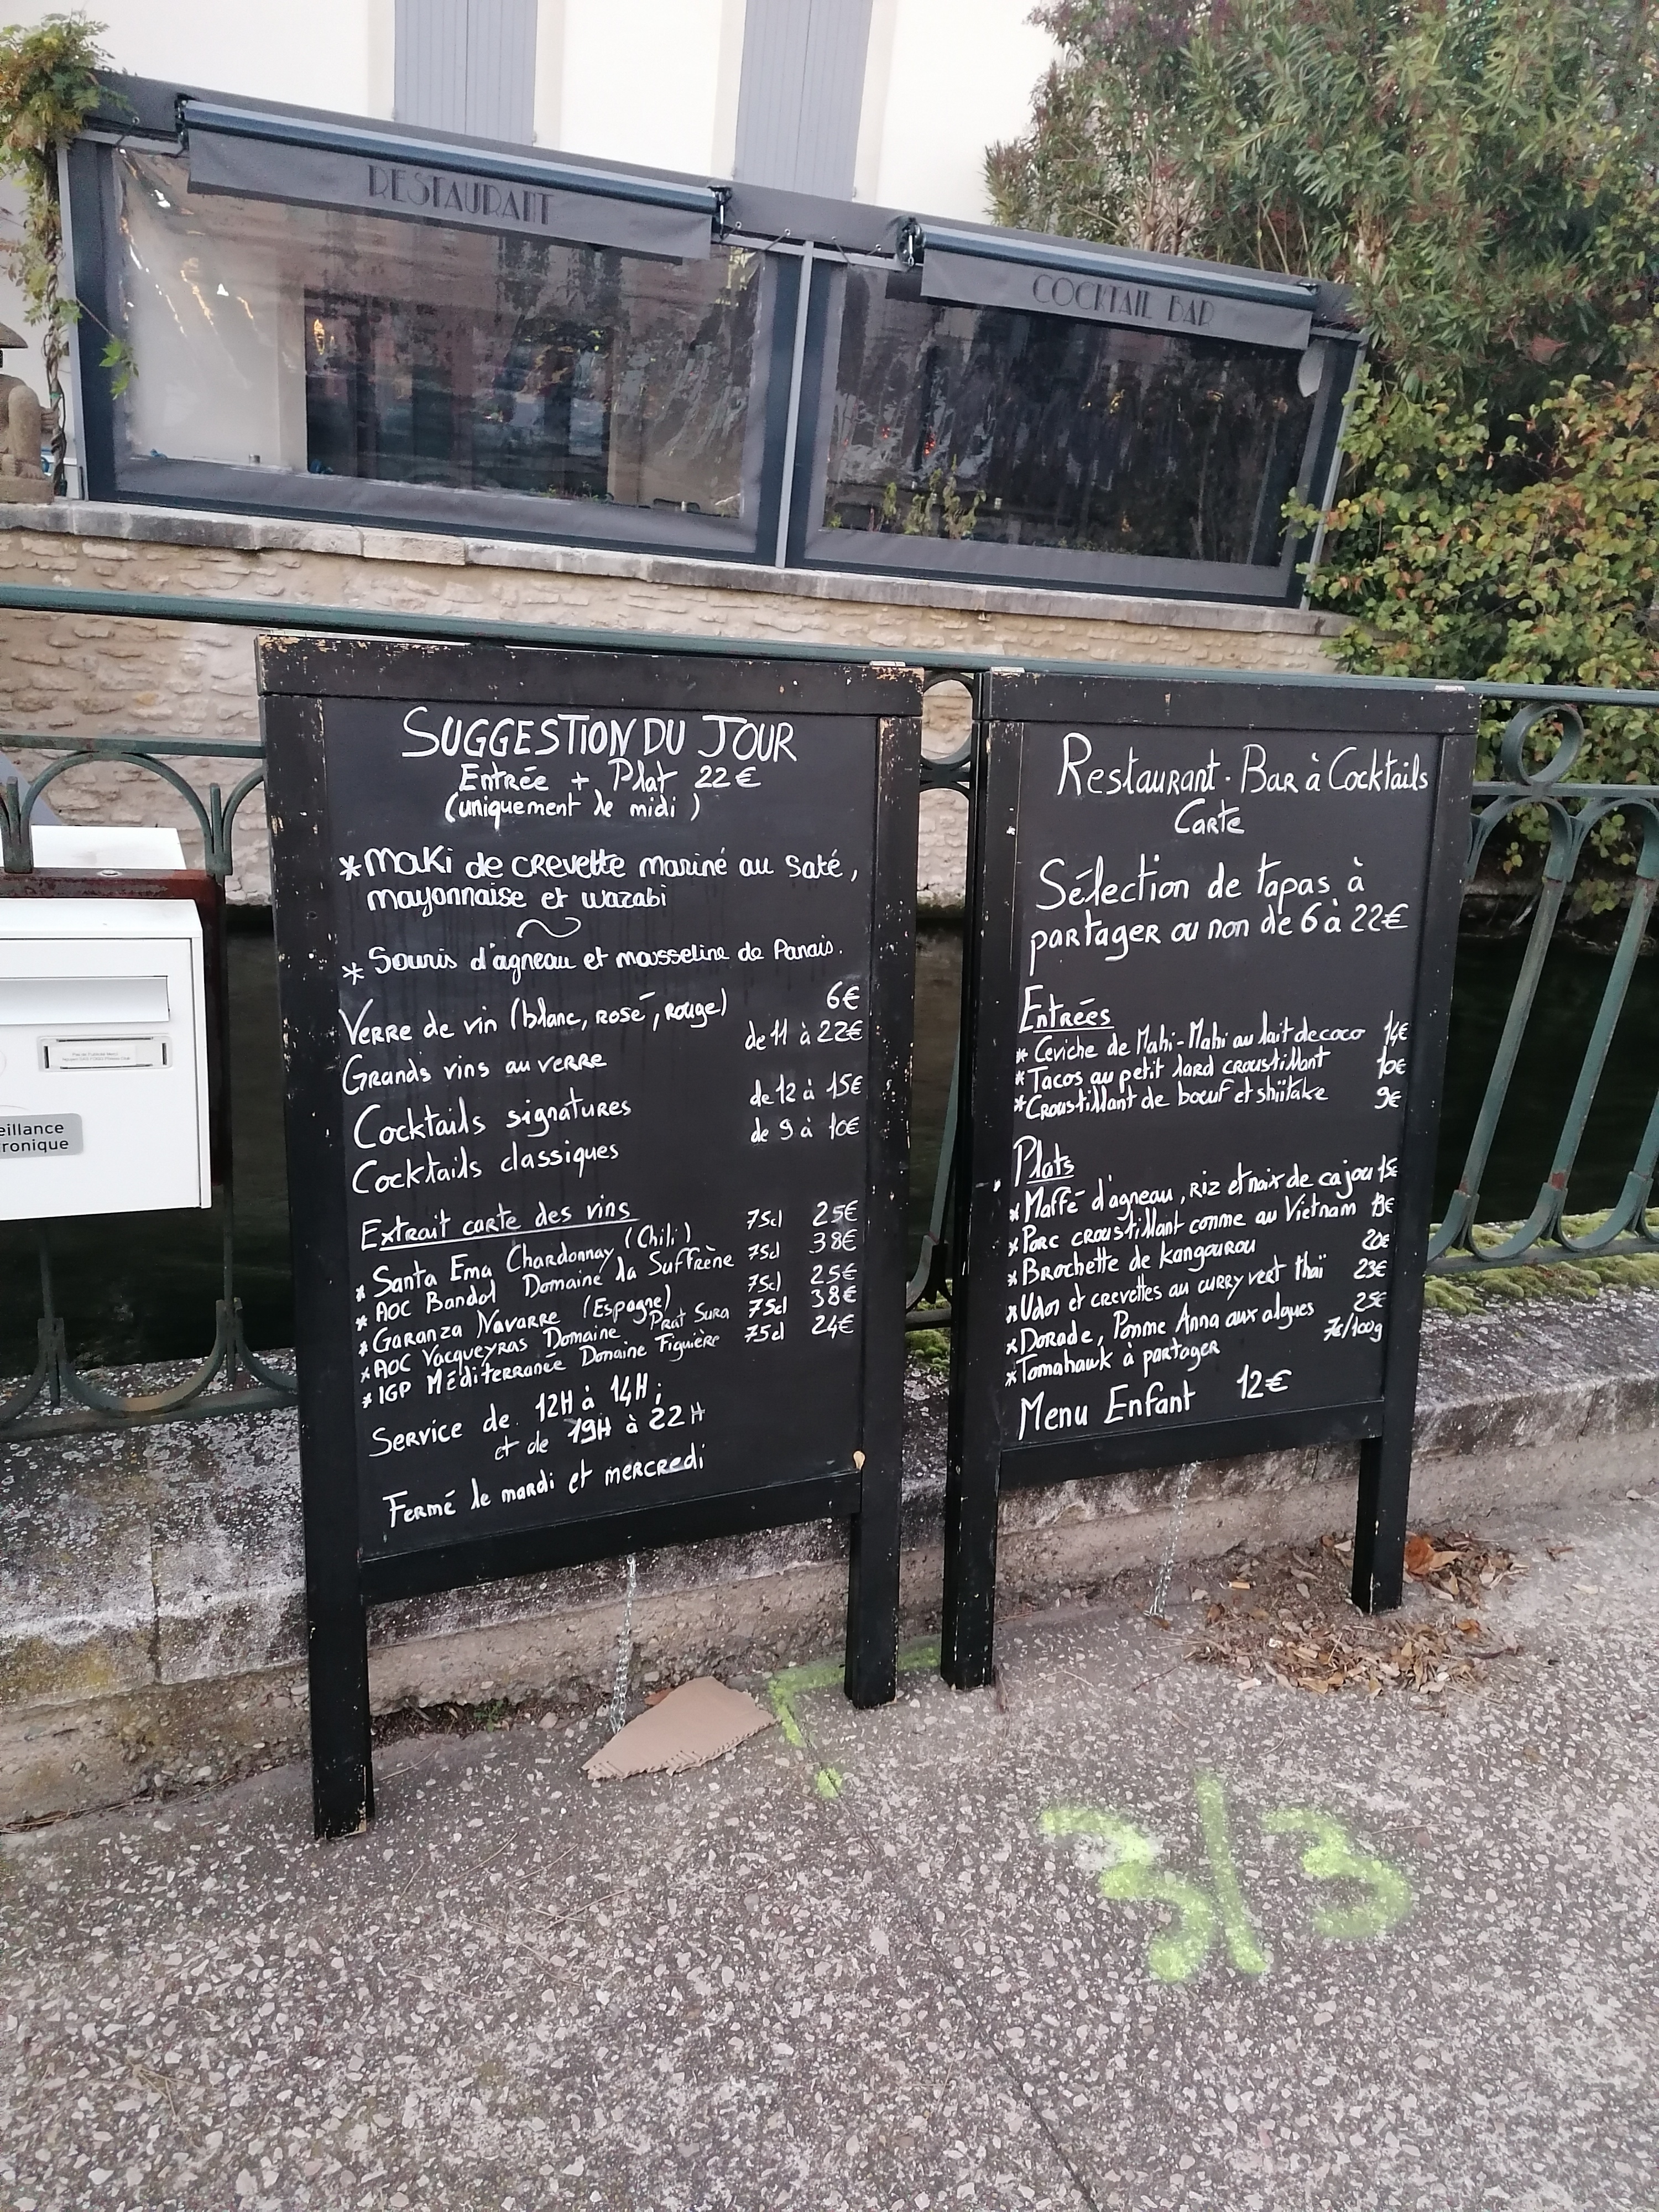 RESTAURANT
COCKTAIL BAR
SUGGESTION DU JOUR
Entrée + Plat 22€
(uniquement le midi)
*Maki de crevette mariné au saté,
mayonnaise et wazabi
* Souris d'agneau et mousseline de Panais.
Verre de vin (blanc, rosé, rouge) 6€
Grands vins au verre de 11 à 22€
Cocktails signatures de 12 à 15€
Cocktails classiques de 9 à 10€
Extrait carte des vins
* Santa Ema Chardonnay (Chili) 75cl 25€
* AOC Bandol Domaine la Suffrène 75cl 38€
* Garanza Navarre (Espagne) 75cl 25€
* AOC Vacqueyras Domaine Prat Sura 75cl 38€
* IGP Méditerranée Domaine Figuière 75cl 24€
Service de 12H à 14H;
et de 19H à 22H
Fermé le mardi et mercredi
Restaurant - Bar à Cocktails
Carte
Sélection de tapas à
partager ou non de 6 à 22€
Entrées
* Ceviche de Mahi-Mahi au lait de coco 14€
* Tacos au petit lard croustillant 10€
* Croustillant de bœuf et shiitake 9€
Plats
* Maffé d'agneau, riz et noix de cajou 15€
* Porc croustillant comme au Vietnam €
* Brochette de kangourou 20€
* Udon et crevettes au curry vert thaï 23€
* Dorade, Pomme Anna aux algues 25€
* Tomahawk à partager 7€/100g
Menu Enfant 12€
eillance
ronique
3/3